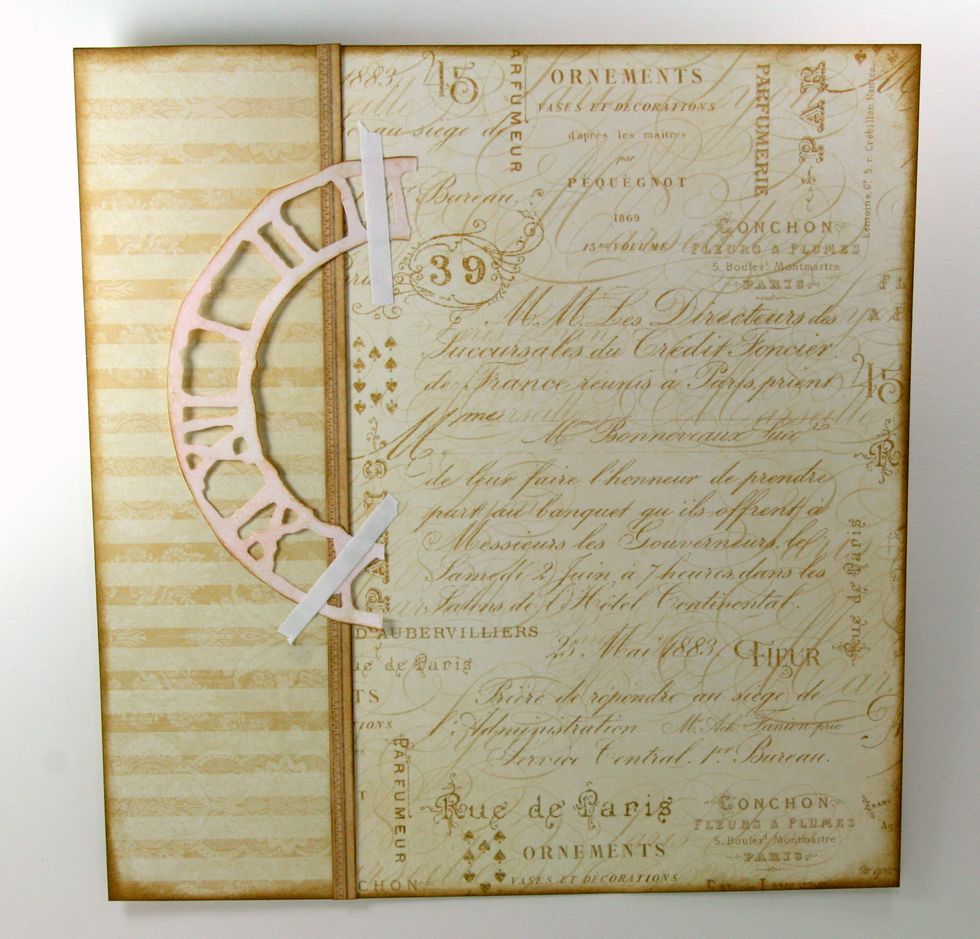 1883.
45
PARFUMEUR
ORNEMENTS
VASES ET DÉCORATIONS
d'après les maîtres
par
PÈQUÈGNOT
1869
15me VOLUME
PARFUMERIE
PAR
Lemoine Cie 5, r. Crébillon, Nantes
au siège de
Bureau.
39
CONCHON
FLEURS & PLUMES
5, Boulevt Montmartre
PARIS
M.M. Les Directeurs des
Succursales du Crédit Foncier
de France réunis à Paris, prient
45
Mme
M Bonneveaux
de leur faire l'honneur de prendre
part au banquet qu'ils offrent à
Messieurs les Gouverneurs, le
Samedi 2 Juin, à 7 heures, dans les
Salons de l'Hôtel Continental.
R
Rue de Paris
D'AUBERVILLIERS
25 Mai 1883.
FIEUR
ue de Paris
Prière de répondre au siège de
TS
l'Administration
IONS
Service Central. 1er Bureau.
PARFUMEUR
Rue de Paris
CONCHON
FLEURS & PLUMES
5, Boulevt Montmartre
PARIS
GRAND
ORNEMENTS
VASES ET DÉCORATIONS
CHON